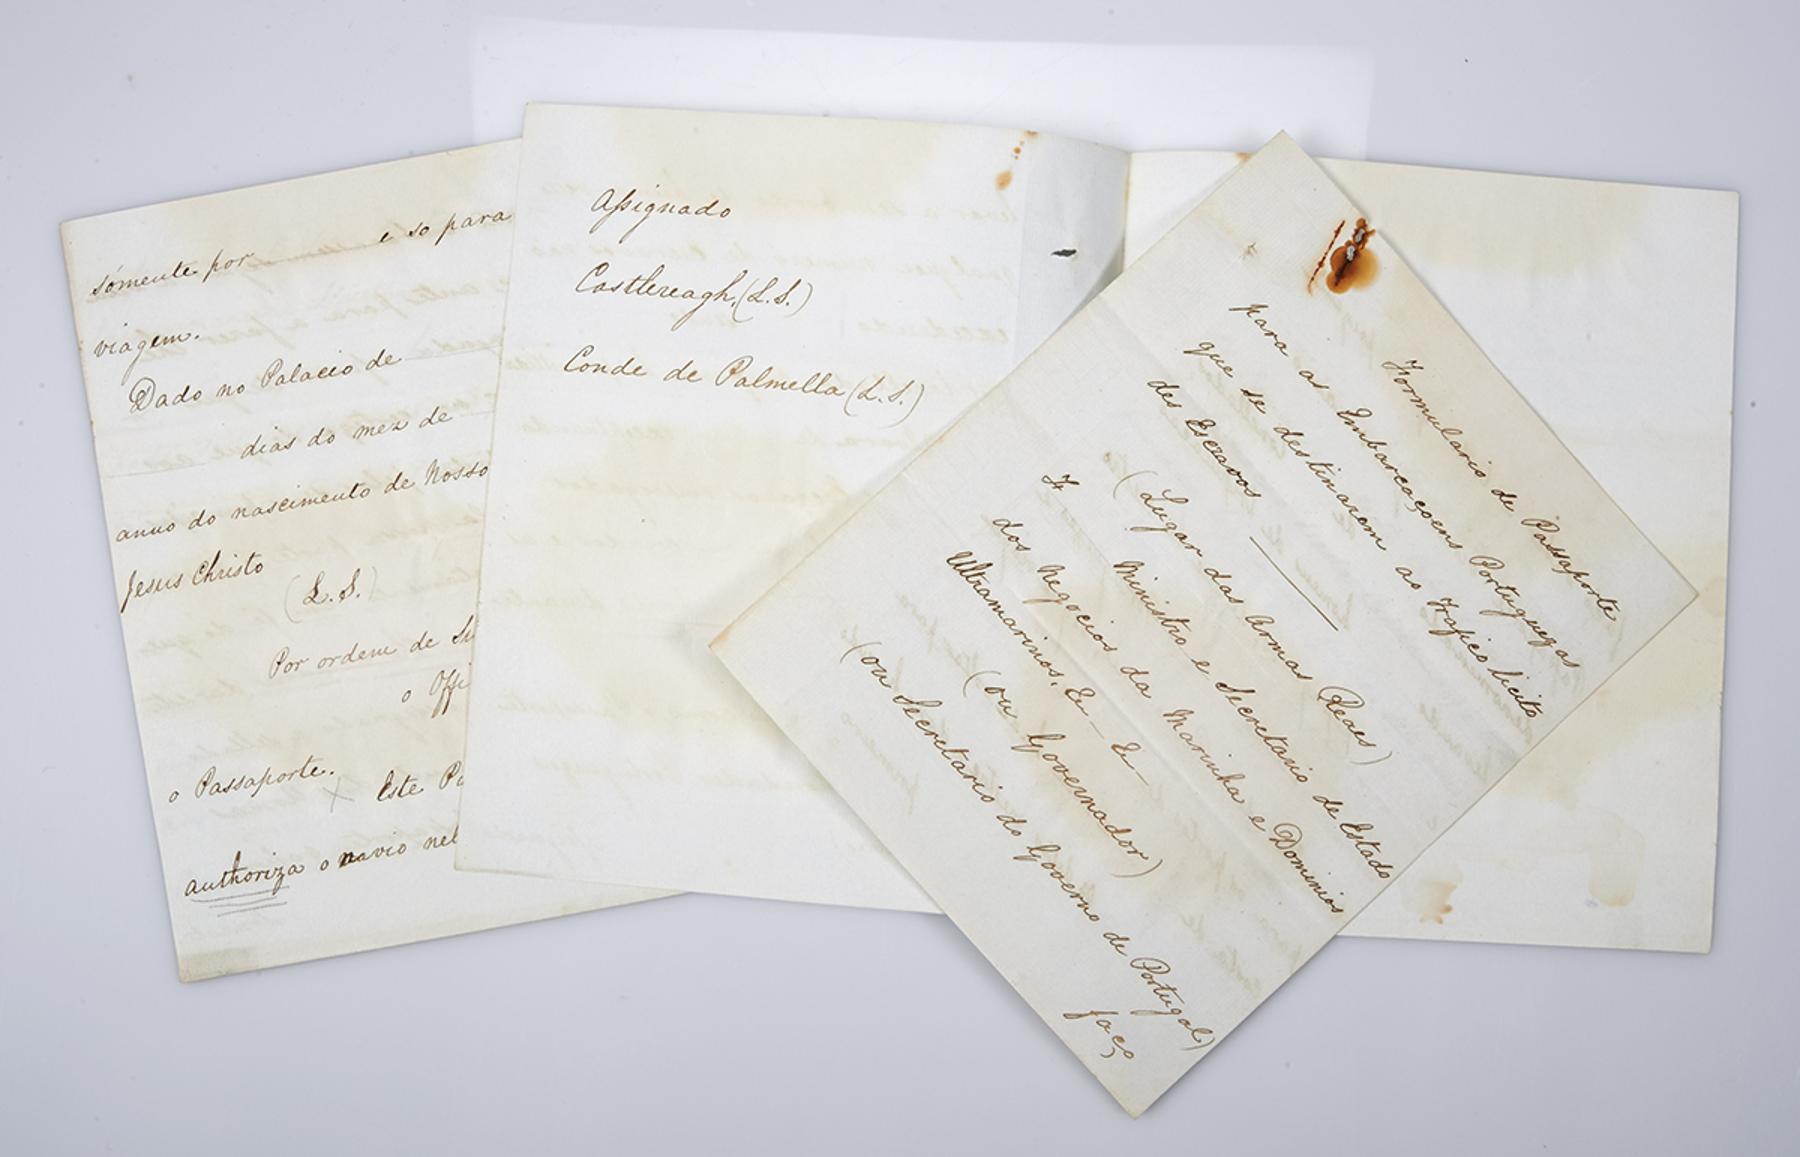 sómente por e so para
viagem.
Dado no Palacio de
dias do mez de
anno do nascimento de Nosso
Jesus Christo
(L. S.)
Por ordem de
o Offi
o Passaporte. × Este Pa
authoriza o navio nel
Assignado
Castlereagh, (L. S.)
Conde de Palmella (L. S.)
Formulario de Passaporte
para as Embarcaçoens Portuguezas
que se destinarem ao Trafico licito
des Escravos
(Lugar das Armas Reaes)
F Ministro e Secretario de Estado
dos Negocios da Marinha e Dominios
Ultramarinos, &c &c
(ou Governador)
(ou Secretario do Governo de Portugal)
faço